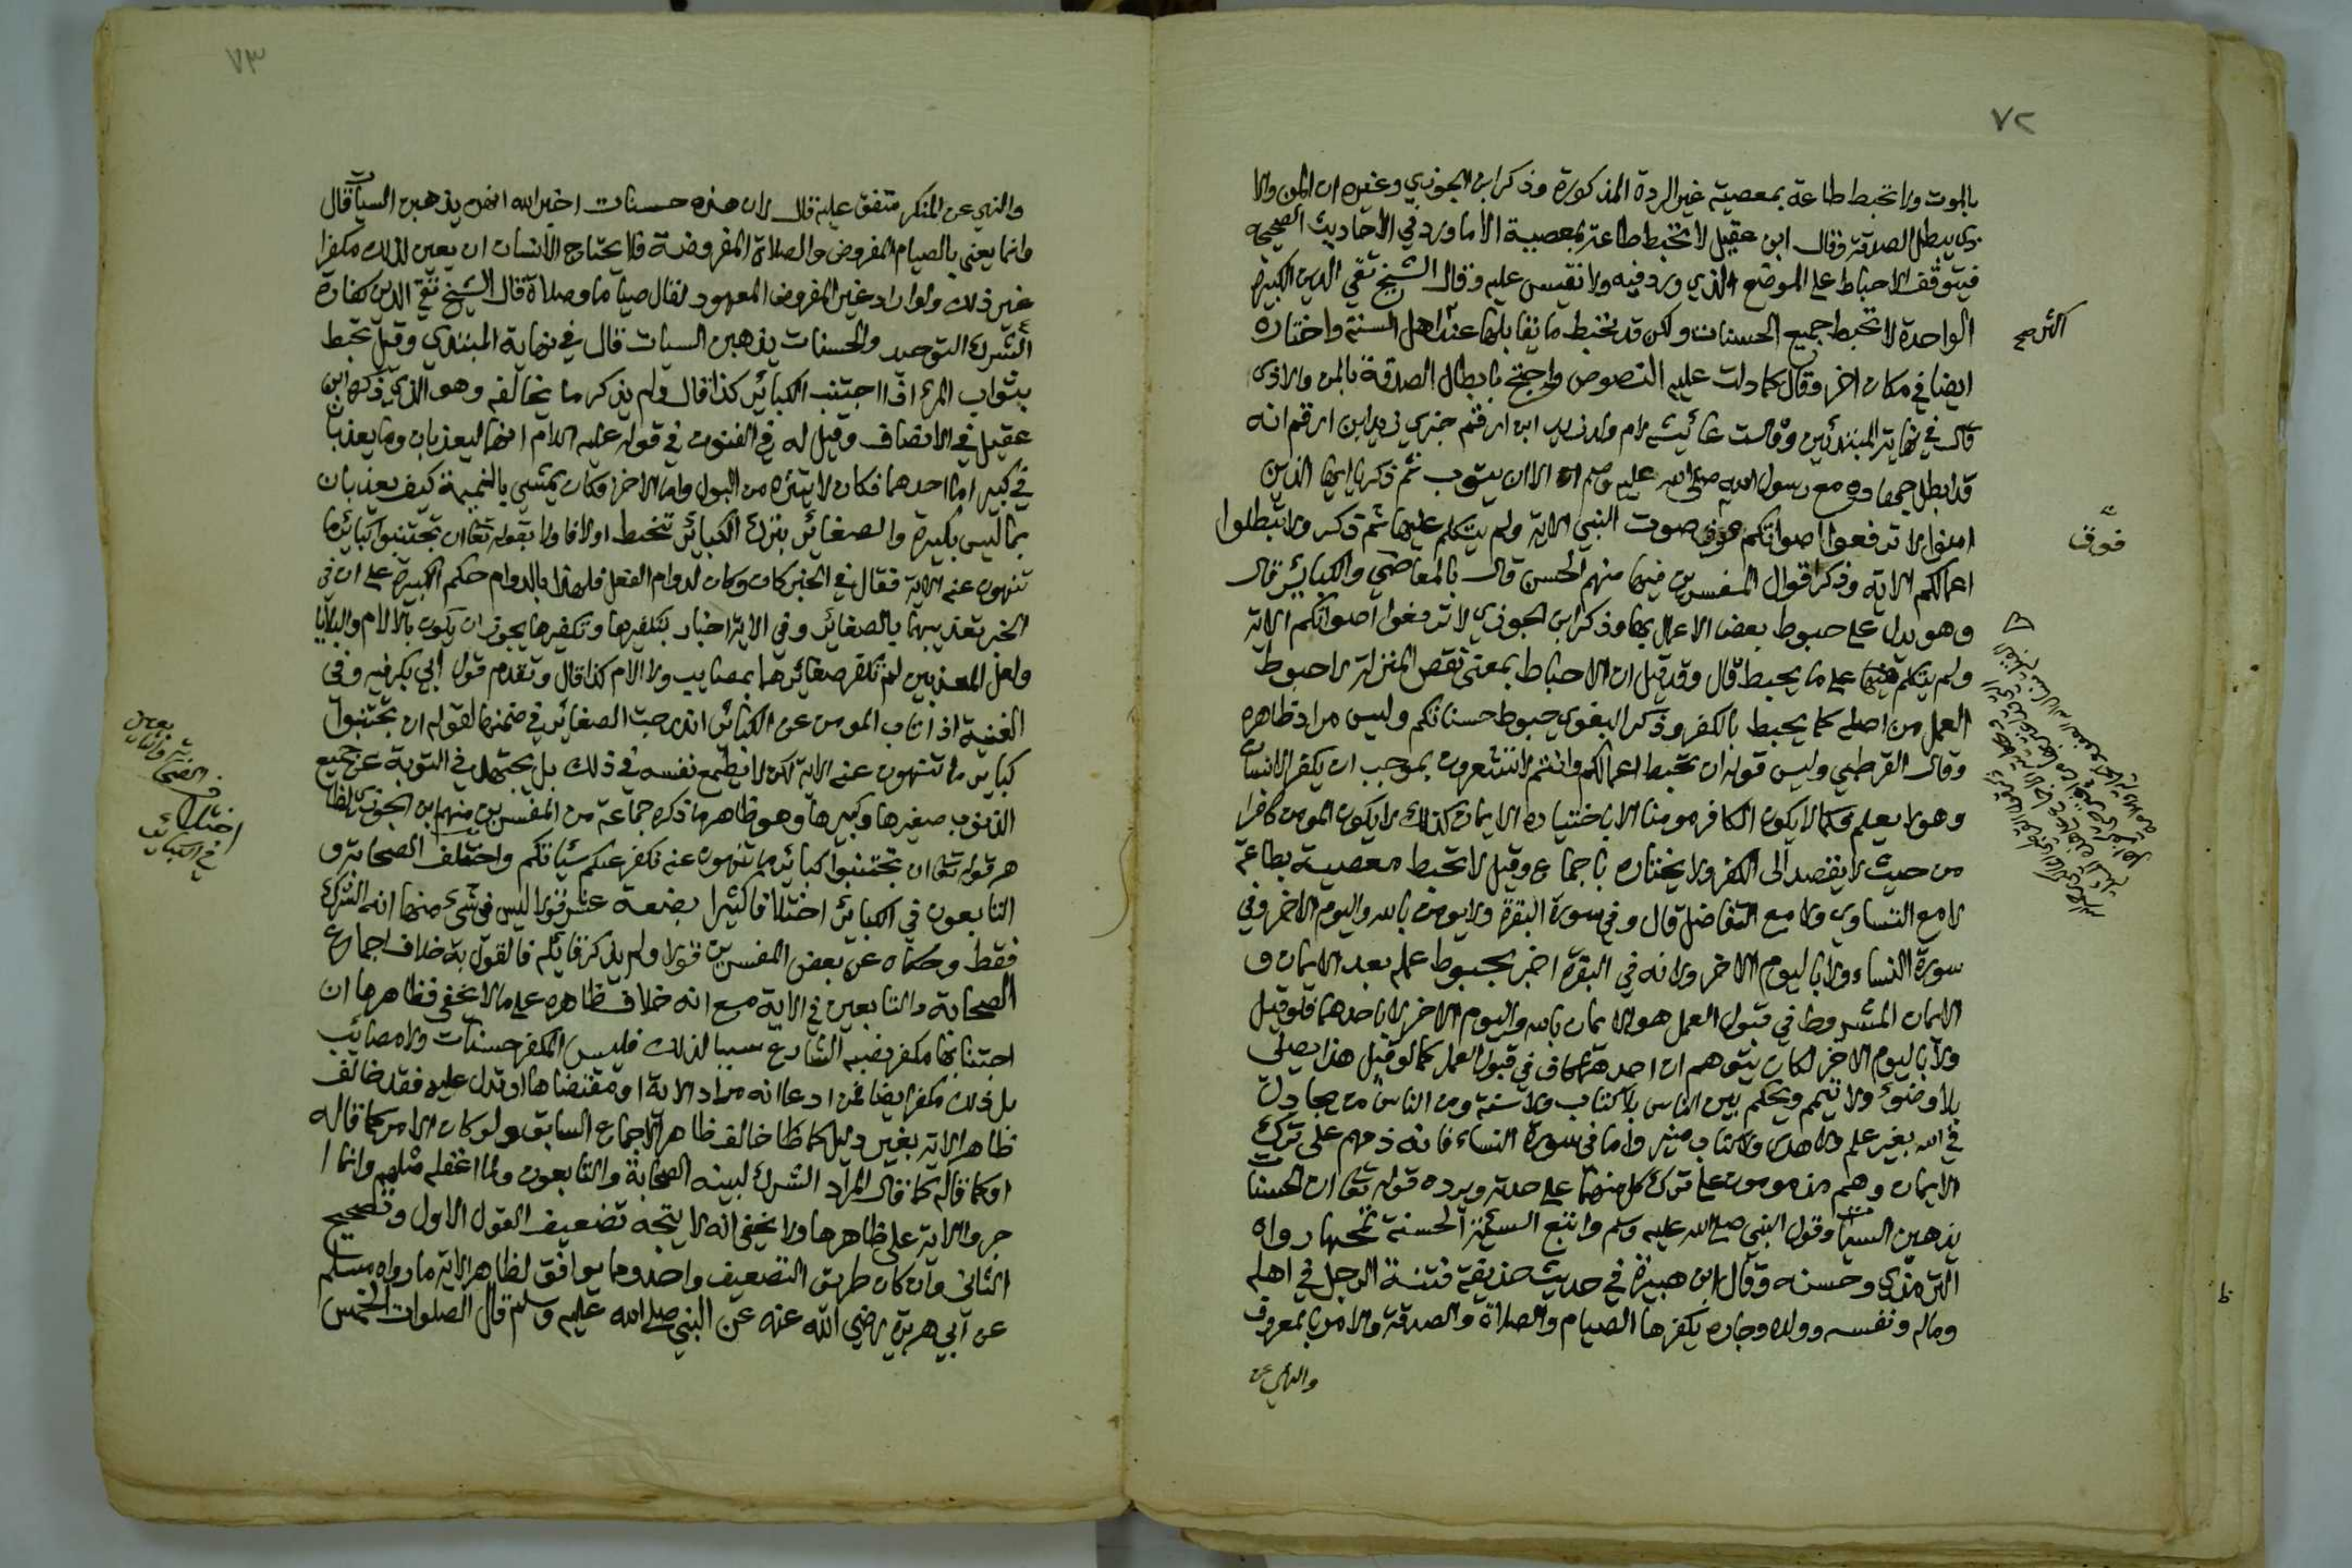 ٧٢
بالموت ولا تحبط طاعة بمعصية غير الردة المذكورة وذكر ابن الجوزي وغيره ان المن والا
ذي يبطل الصدقة وقال ابن عقيل لا تحبط طاعة بمعصية الا ما ورد في الاحاديث الصحيحة
فيتوقف الاحباط على الموضع الذي ورد فيه ولا نقيس عليه وقال الشيخ تقي الدين الكبيرة
الواحدة لا تحبط جميع الحسنات ولكن قد تحبط ما يقابلها عند اهل السنة واختاره
ايضا في مكان اخر وقال كما دلت عليه النصوص واحتج بابطال الصدقة بالمن والاذى
قال في نهاية المبتدئين وقالت عائشة لام ولد زيد ابن ارقم خبري زيد ابن ارقم انه
قد ابطل جهاده مع رسول الله صلى الله عليه وسلم الا ان يتوب ثم ذكر يا ايها الذين
امنوا لا ترفعوا اصواتكم فوق صوت النبي الاية ولم يتكلم عليها ثم ذكر ولا تبطلوا
اعمالكم الاية وذكر اقوال المفسرين فيها منهم الحسن قال بالمعاصي والكبائر قال
وهو يدل على حبوط بعض الاعمال بها وذكر ابن الجوزي لا ترفعوا اصواتكم الاية
ولم يتكلم فيها على ما يحبط قال وقد قيل ان الاحباط بمعنى نقص المنزلة لا حبوط
العمل من اصله كما يحبط بالكفر وذكر البغوي حبوط حسناتكم وليس مراد ظاهره
وقال القرطبي وليس قوله ان تحبط اعمالكم وانتم لا تشعرون بموجب ان يكفر الانسان
وهو لا يعلم وكما لا يكون الكافر مومنا الا باختياره الايمان كذلك لا يكون المومن كافرا
من حيث لا يقصد الى الكفر ولا يختاره باجماع وقيل لا تحبط معصية بطاعة
لا مع التساوي ولا مع التفاضل قال وفي سورة البقرة ولا يومن بالله واليوم الاخر وفي
سورة النساء ولا باليوم الاخر ولانه في البقرة اخبر بحبوط عمله بعد الايمان و
الايمان المشروط في قبول العمل هو الايمان بالله واليوم الاخر لا باحدهما فلو قيل
ولا باليوم الاخر لكان يتوهم ان احدهما كاف في قبول العمل كما لو قيل هذا يصلى
بلا وضوء ولا تيمم ويحكم بين الناس بلا كتاب ولا سنة ومن الناس من يجادل
في الله بغير علم ولا هدى ولا كتاب منير واما في سورة النساء فانه ذمهم على ترك
الايمان وهم مذمومون على ترك كل منهما على حدته ويرده قوله تعا ان الحسنات
يذهبن السيئات وقول النبي صلى الله عليه وسلم واتبع السيئة الحسنة تمحها رواه
الترمذي وحسنه وقال ابن هبيرة في حديث حذيفة فتنة الرجل في اهله
وماله ونفسه وولده وجاره يكفرها الصيام والصلاة والصدقة والامر بالمعروف
والنهي عن
اكثر صح
فوق
٧٣
والنهي عن المنكر متفق عليه قال لان هذه حسنات اخبر الله انهن يذهبن السيات قال
وانما يعني بالصيام المفروض والصلاة المفروضة فلا يحتاج الانسان ان يعين لذلك مكفرا
غير ذلك ولو اراد غير المفروض المعهود لقال صياما وصلاة قال الشيخ تقي الدين كفارة
الشرك التوحيد والحسنات يذهبن السيات قال في نهاية المبتدي وقيل تحبط
بثواب المرء اذا اجتنب الكبائر كذا قال ولم يذكر ما يخالفه وهو الذي ذكره ابن
عقيل في الانصاف وقيل له في الفنون في قوله عليه السلام انهما ليعذبان وما يعذبان
في كبير اما احدهما فكان لا يتنزه من البول واما الاخر فكان يمشي بالنميمة كيف يعذبان
بما ليس بكبيرة والصغائر بترك الكبائر تنحبط اولا فاولا بقوله تعا ان تجتنبوا كبائر ما
تنهون عنه الاية فقال في الخبر كان وكان لدوام الفعل فلهذا بالدوام حكم الكبيرة على ان في
الخبر تعذيبهما بالصغائر وفي الاية اخبار بتكفيرها وتكفيرها يجوز ان يكون بالالام والبلايا
ولعل المعذبين لم تكفر صغائرهما بمصايب ولا الام كذا قال وتقدم قول ابي بكر فيه وفي
الغنية اذا تاب المومن عن الكبائر اندرجت الصغائر في ضمنها لقوله ان تجتنبوا
كبائر ما تنهون عنه الاية لكن لا يطمع نفسه في ذلك بل يجتهد في التوبة عن جميع
الذنوب صغيرها وكبيرها وهو ظاهر ما ذكره جماعة من المفسرين منهم ابن الجوزي لظا
هر قوله تعا ان تجتنبوا كبائر ما تنهون عنه نكفر عنكم سيئاتكم واختلف الصحابة و
التابعون في الكبائر اختلافا كثيرا بضعة عشر قولا ليس في شيء منها انه الشرك
فقط وحكاه عن بعض المفسرين قولا ولم يذكر قايله فالقول به خلاف اجماع
الصحابة والتابعين في الاية مع انه خلاف ظاهره على ما لا يخفى فظاهرها ان
اجتنابها مكفر نصبه الشارع سببا لذلك فليس المكفر حسنات ولا مصائب
بل ذلك مكفر ايضا فمن ادعا انه مراد الاية او مقتضاها او تدل عليه فقد خالف
ظاهر الاية بغير دليل كما ظاهر خالف ظاهر الاجماع السابق ولو كان الامر كما قاله
او كما قاله كما قال المراد الشرك لبينه الصحابة والتابعون ولما اغفله مثلهم وانما ا
جروا الاية على ظاهرها ولا يخفى انه لا يتجه تضعيف القول الاول وتصحيح
الثاني وان كان طريق التضعيف واحد وما يوافق لظاهر الاية ما رواه مسلم
عن ابي هريرة رضي الله عنه عن النبي صلى الله عليه وسلم قال الصلوات الخمس
اختلاف
في الكبائر